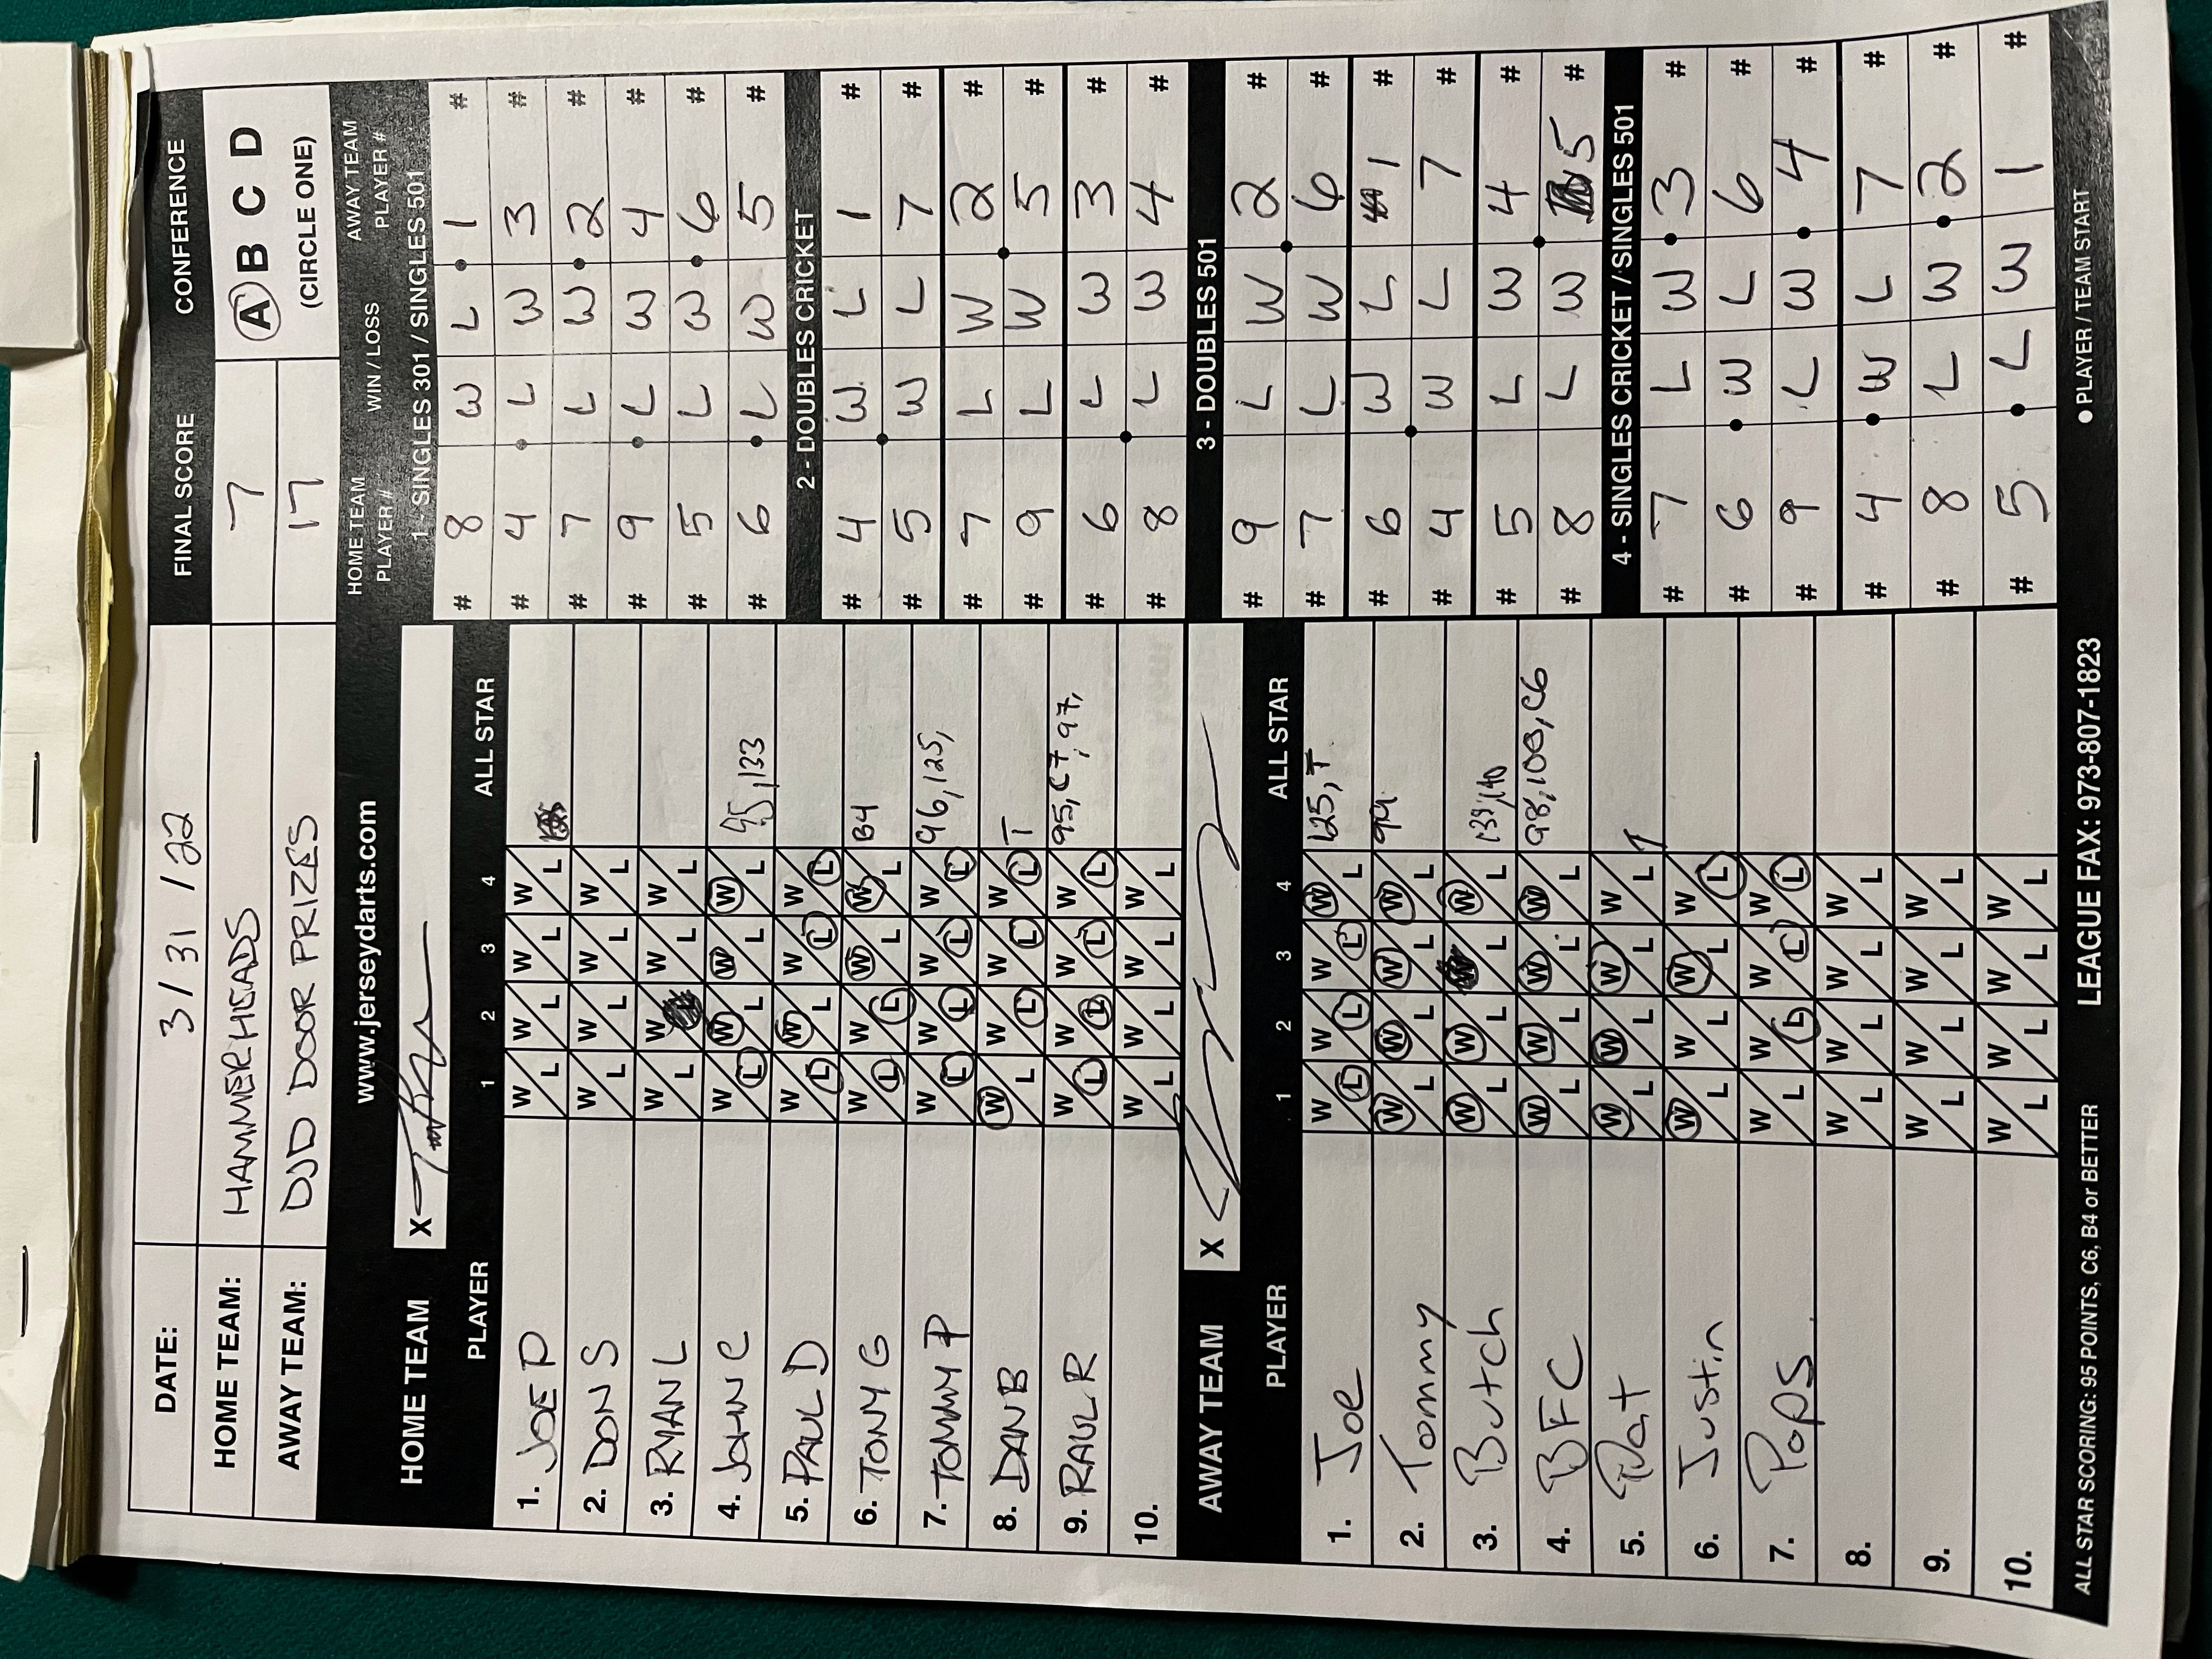 DATE: 3/31/22 FINAL SCORE CONFERENCE
HOME TEAM: HAMMERHEADS 7 A B C D
AWAY TEAM: DJD DOOR PRIZES 17 (CIRCLE ONE)
www.jerseydarts.com
HOME TEAM X
PLAYER 1 2 3 4 ALL STAR
1. JOE P W L W L W L W L
2. DON S W L W L W L W L
3. RYAN L W L W W L W L
4. JOHN C W L W L W L W L 95, 133
5. PAUL D W L W L W L W L
6. TONY G W L W L W L W L B4
7. TOMMY P W L W L W L W L 96, 125,
8. DAN B W L W L W L W L T
9. RAUL R W L W L W L W L 95, C7, 97,
10. W L W L W L W L
AWAY TEAM X
PLAYER 1 2 3 4 ALL STAR
1. Joe W L W L W L W L 125, T
2. Tommy W L W L W L W L
3. Butch W L W L L W L 139, 140
4. BFC W L W L W L W L 98, 100, C6
5. Pat W L W L W L W L
6. Justin W L W L W L W L
7. Pops W L W L W L W L
8. W L W L W L W L
9. W L W L W L W L
10. W L W L W L W L
HOME TEAM PLAYER # WIN / LOSS AWAY TEAM PLAYER #
1 - SINGLES 301 / SINGLES 501
# 8 W L 1 #
# 4 L W 3 #
# 7 L W 2 #
# 9 L W 4 #
# 5 L W 6 #
# 6 L W 5 #
2 - DOUBLES CRICKET
# 4 W L 1 #
# 5 W L 7 #
# 7 L W 2 #
# 9 L W 5 #
# 6 L W 3 #
# 8 L W 4 #
3 - DOUBLES 501
# 9 L W 2 #
# 7 L W 6 #
# 6 W L 1 #
# 4 W L 7 #
# 5 L W 4 #
# 8 L W 5 #
4 - SINGLES CRICKET / SINGLES 501
# 7 L W 3 #
# 6 W L 6 #
# 9 L W 4 #
# 4 W L 7 #
# 8 L W 2 #
# 5 L W 1 #
ALL STAR SCORING: 95 POINTS, C6, B4 or BETTER LEAGUE FAX: 973-807-1823 ● PLAYER / TEAM START